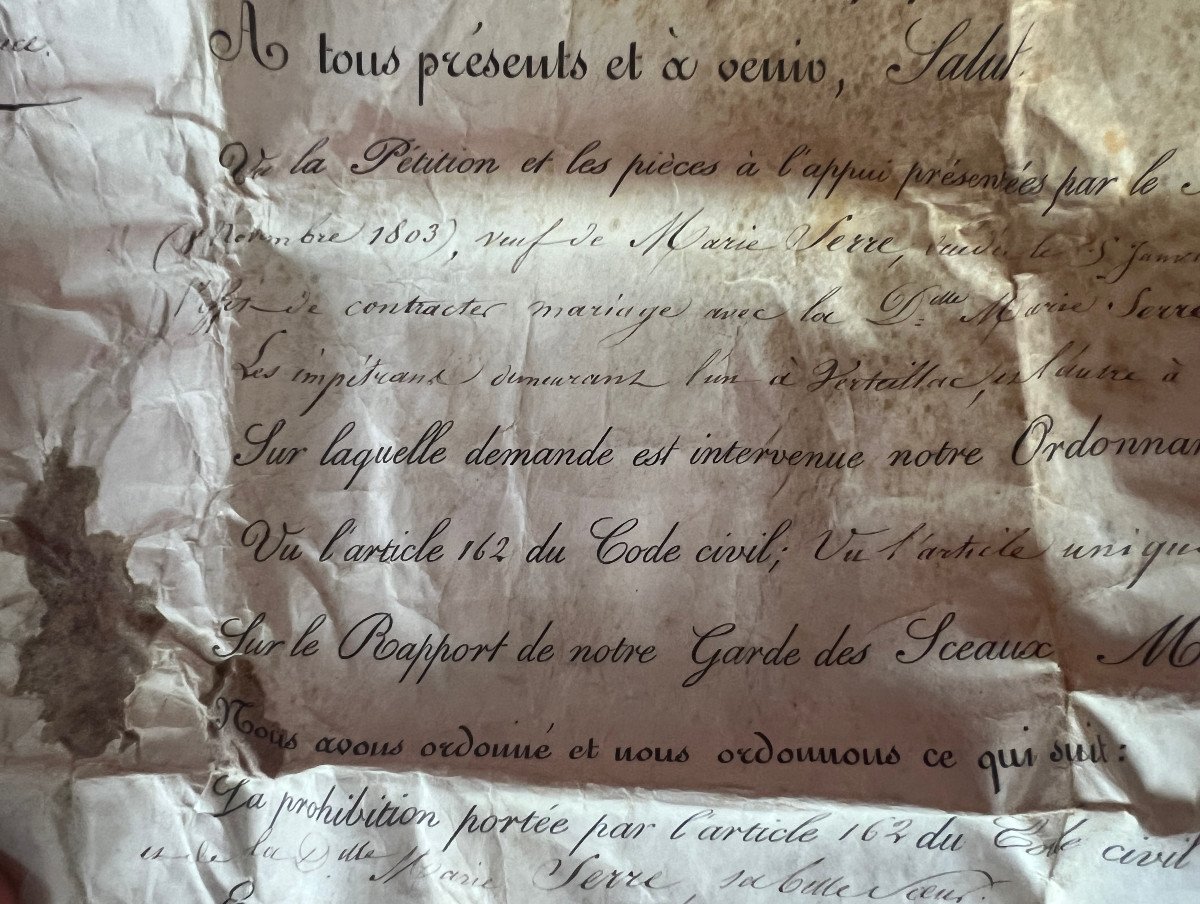 A tous présents et à venir, Salut.
Vu la Pétition et les pièces à l'appui présentées par le
Novembre 1803), veuf de Marie Serre, le 5 Janvi
de contracter mariage avec la D.lle Marie Serre
Les impétrans demeurant l'un à Verteillac, et l'autre à
Sur laquelle demande est intervenue notre Ordonnan
Vu l'article 162 du Code civil; Vu l'article uniqu
Sur le Rapport de notre Garde des Sceaux M
Nous avons ordonné et nous ordonnons ce qui suit:
La prohibition portée par l'article 162 du Code civil
et de la D.lle Marie Serre, sa belle Sœur.